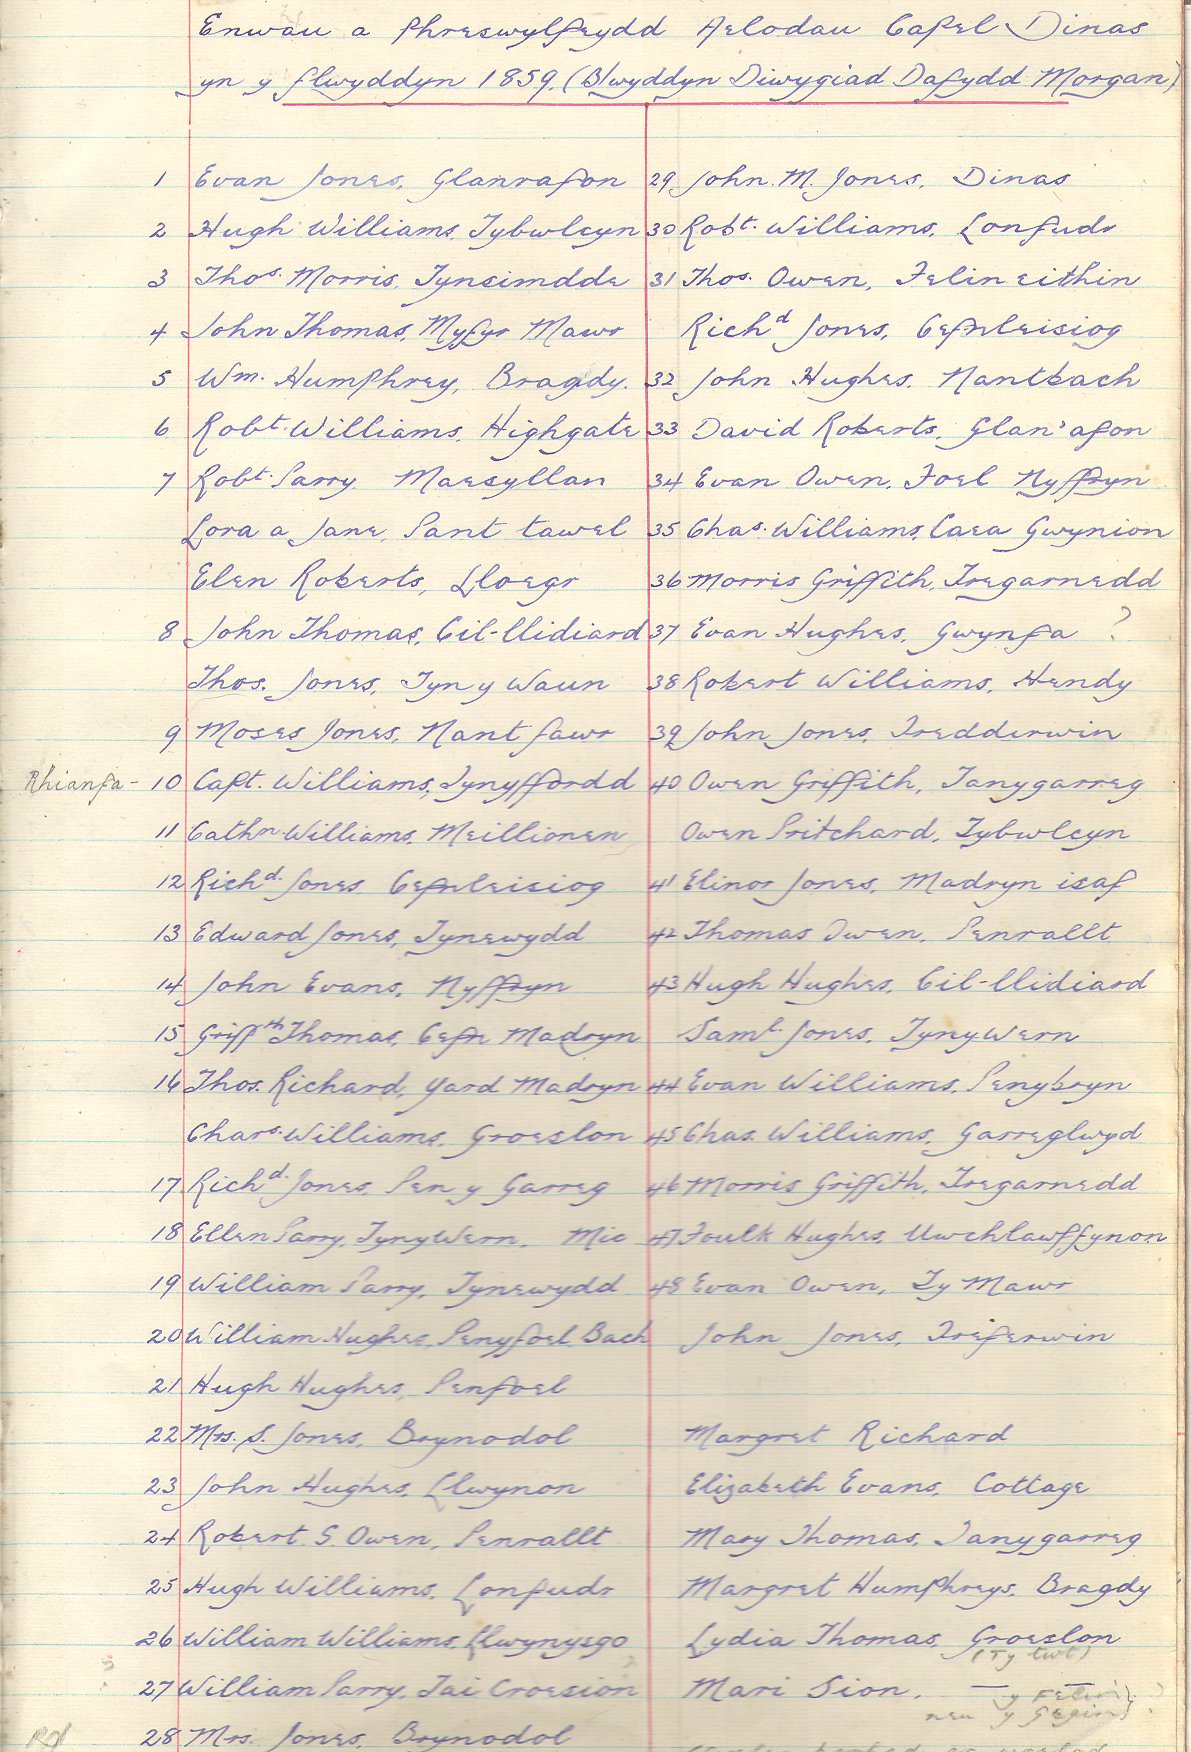 Enwau a Phreswylfeydd Aelodau Capel Dinas
yn y flwyddyn 1859. (Blwyddyn Diwygiad Dafydd Morgan)
1 Evan Jones, Glanrafon
2 Hugh Williams, Tybwlcyn
3 Thos. Morris, Tynsimdde
4 John Thomas, Myfyr Mawr
5 Wm. Humphrey, Bragdy.
6 Robt. Williams, Highgate
7 Robt. Parry Maesyllan
Lora a Jane, Pant tawel
Elen Roberts, Lloegr
8 John Thomas, Cil-llidiard
Thos. Jones, Tyn y Waun
9 Moses Jones, Nant fawr
Rhianfa - 10 Capt. Williams, Tynyffordd
11 Cathn. Williams, Meillionen
12 Richd. Jones Cefnleisiog
13 Edward Jones, Tynewydd
14 John Evans, Nyffryn
15 Griffth Thomas, Cefn Madryn
16 Thos. Richard, Yard Madryn
Chars. Williams, Groeslon
17 Richd. Jones, Pen y Garreg
18 Ellen Parry, TynyWern, Mic
19 William Parry, Tynewydd
20 William Hughes, Penyfoel Bach
21 Hugh Hughes, Penfoel
22 Mrs. S. Jones, Brynodol
23 John Hughes, Llwynon
24 Robert S. Owen, Penrallt
25 Hugh Williams, Lonfudr
26 William Williams, Llwynysgo
27 William Parry, Tai Croesion
28 Mrs. Jones, Brynodol
29 John. M. Jones, Dinas
30 Robt. Williams, Lonfudr
31 Thos. Owen, Felin eithin
Richd Jones, Cefnleisiog
32 John Hughes, Nantbach
33 David Roberts, Glan'afon
34 Evan Owen, Foel Nyffryn
35 Chas. Williams, Caea Gwynion
36 Morris Griffith, Tregarnedd
37 Evan Hughes, Gwynfa ?
38 Robert Williams, Hendy
39 John Jones, Tredderwin
40 Owen Griffith, Tanygarreg
Owen Pritchard, Tybwlcyn
41 Elinor Jones, Madryn isaf
42 Thomas Owen, Penrallt
43 Hugh Hughes, Cil-llidiard
Saml. Jones, TynyWern
44 Evan Williams, Penybryn
45 Chas. Williams, Garreglwyd
46 Morris Griffith, Tregarnedd
47 Foulk Hughes, Uwchlawffynon
48 Evan Owen, Ty Mawr
John Jones, Treferwin
Margret Richard
Elizabeth Evans, Cottage
Mary Thomas, Tanygarreg
Margret Humphreys, Bragdy
Lydia Thomas, Groeslon
(Ty twt)
Mari Sion, — —
neu y